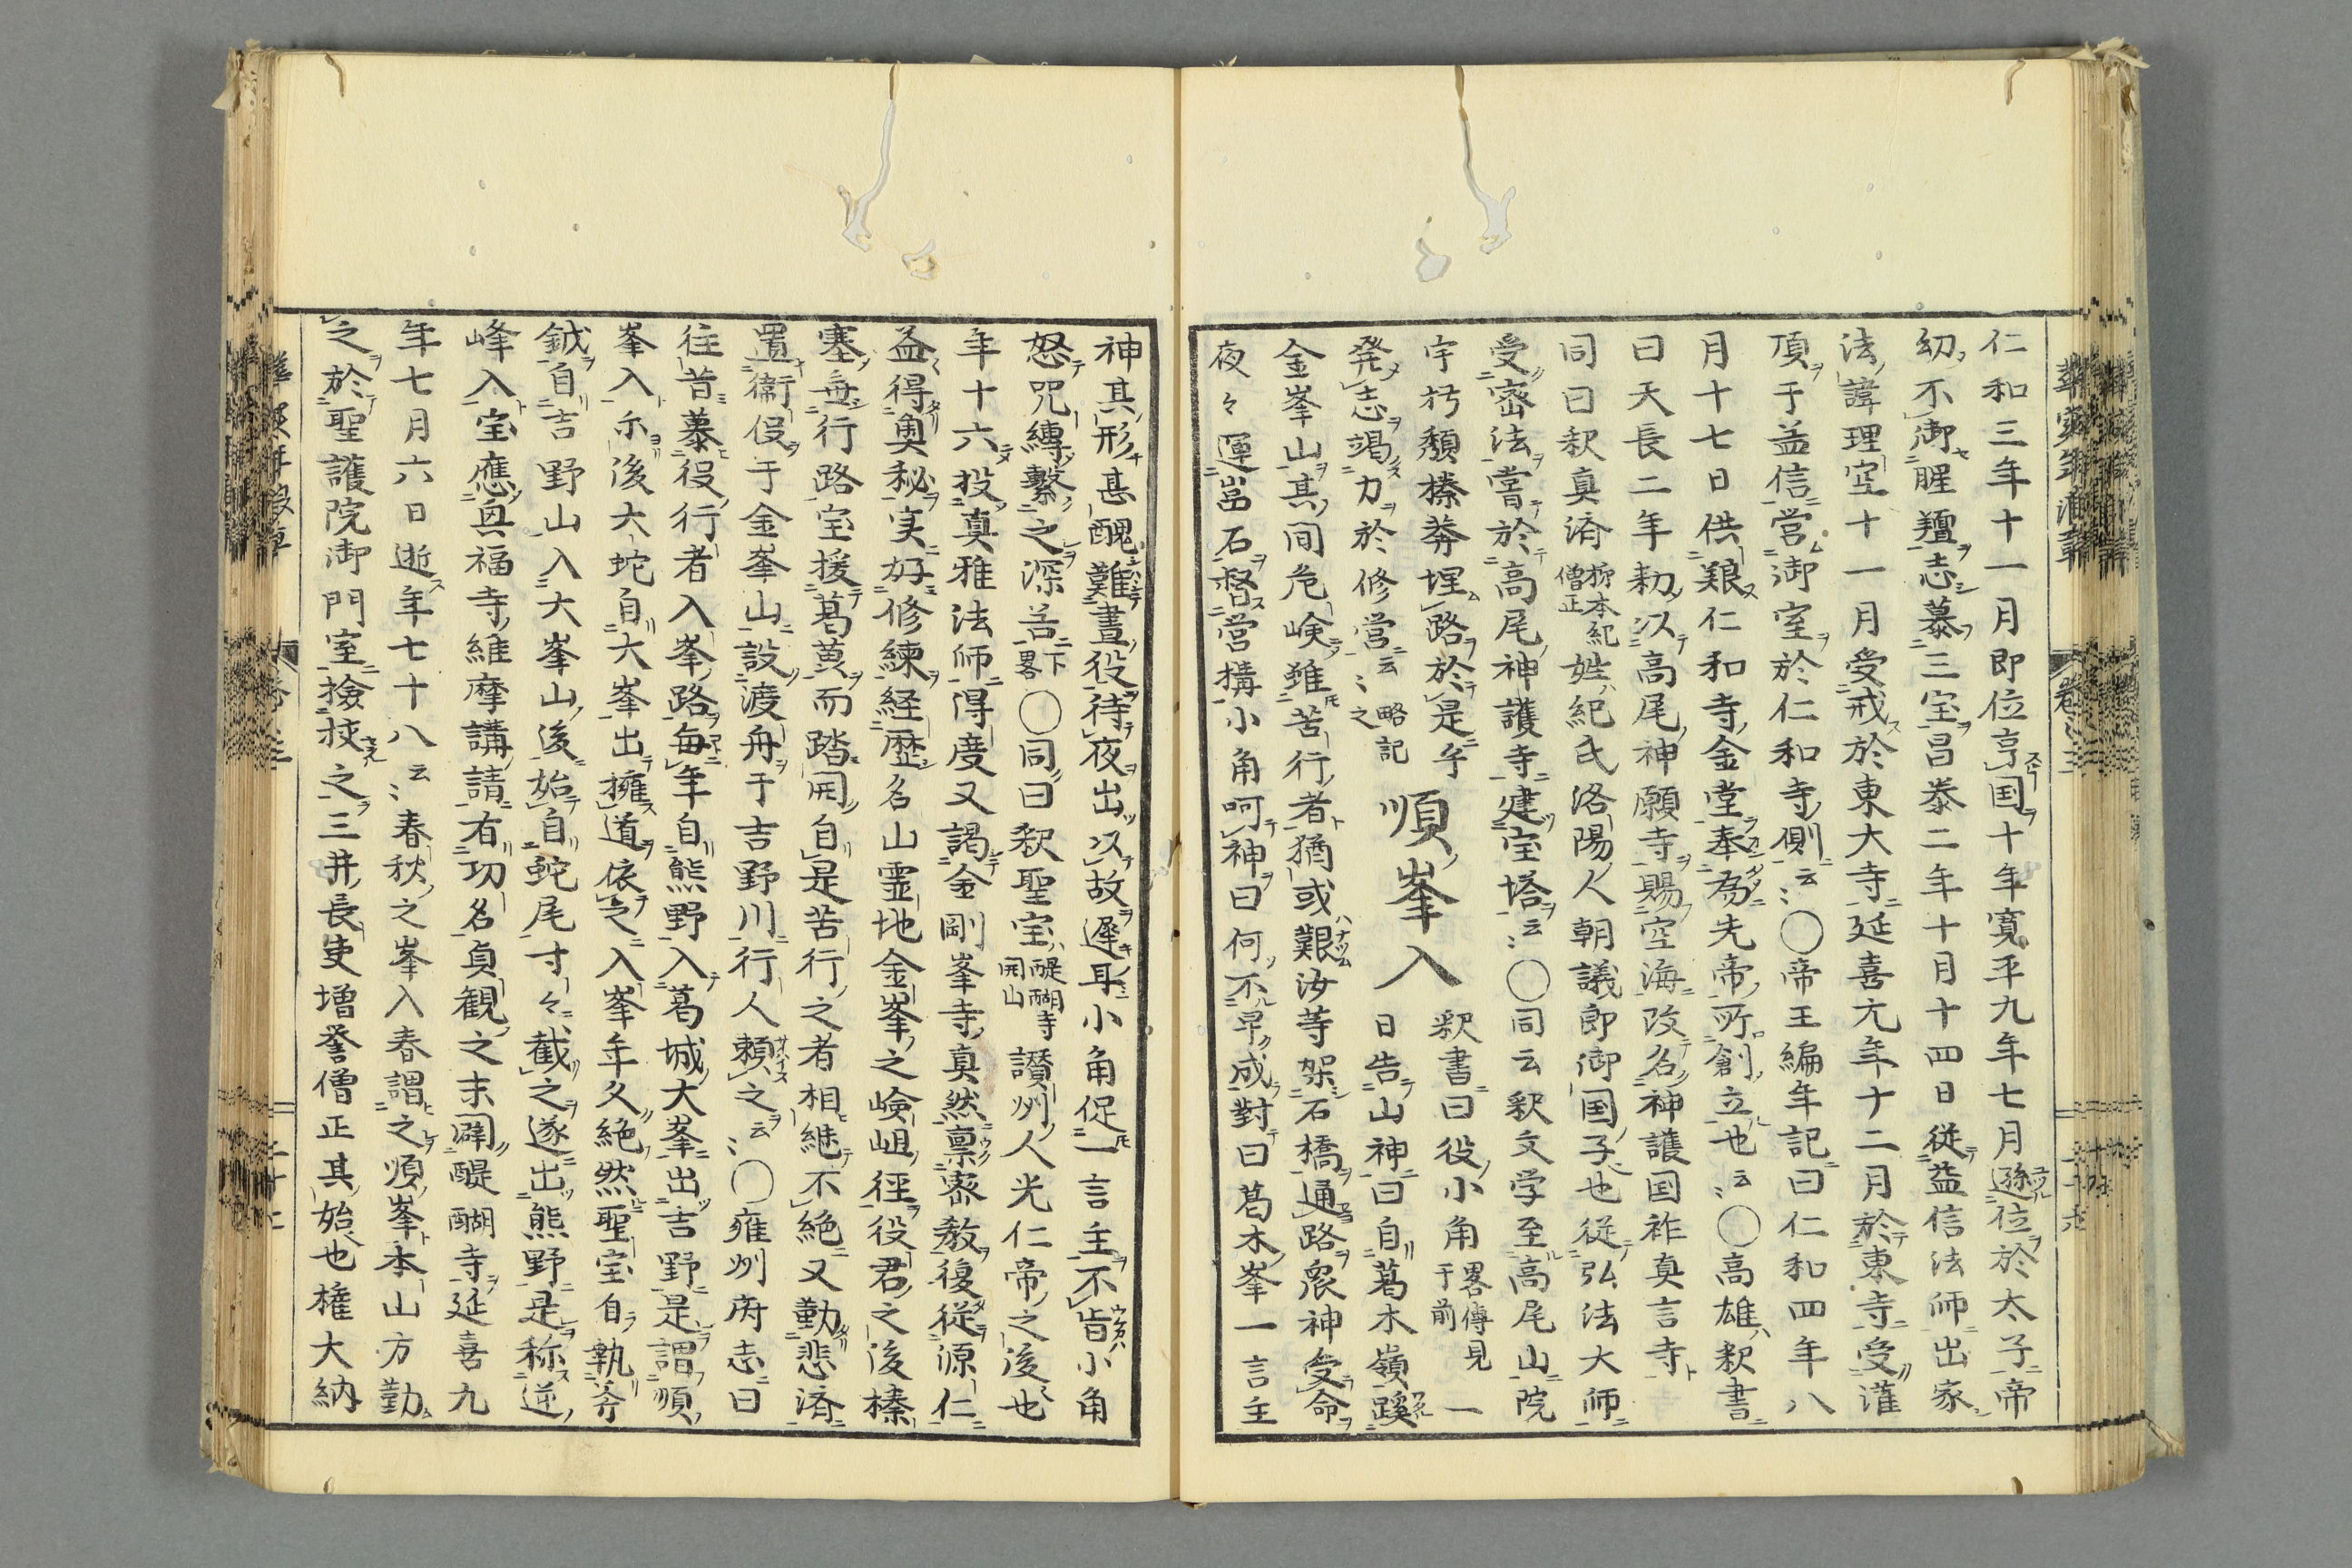 仁和三年十一月即位享国十年寛平九年七月遜位於太子帝
幼不御腥羶志慕三宝昌泰二年十月十四日従益信法師出家
法諱理空十一月受戒於東大寺延喜元年十二月於東寺受灌
頂于益信営御室於仁和寺側云〻〇帝王編年記曰仁和四年八
月十七日供養仁和寺金堂奉為先帝所創立也云〻〇高雄釈書
曰天長二年勅以高尾神願寺賜空海改名神護国祚真言寺
同曰釈真済柿本紀僧正姓紀氏洛陽人朝議郎御国子也従弘法大師
受密法嘗於高尾神護寺建宝塔云〻〇同云釈文学至高尾山院
宇朽頽榛莽埋路於是乎
発志竭力於修営云〻略之記
順峯入
釈書曰役小角畧傳見于前一
日告山神曰自葛木嶺蹊
金峯山其間危嶮雖苦行者猶或艱汝等架石橋通路衆神受命
夜々運嵓石督営構小角呵神曰何不早成對曰葛木峯一言主
神其形甚醜難晝役待夜出以故遅耳小角促一言主不肯小角
怒咒縛繋之深谷下畧〇同曰釈聖宝醍醐寺開山讃州人光仁帝之後也
年十六投真雅法師得度又謁金剛峯寺真然禀密教復従源仁
益得奥秘実好修練経歴名山霊地金峯之嶮岨径役君之後榛
塞無行路宝援葛藟而踏開自是苦行之者相継不絶又勤悲済
置衛侵于金峯山設渡舟于吉野川行人頼之云〻〇雍州府志曰
往昔慕役行者入峯路毎年自熊野入葛城大峯出吉野是謂順
峯入尓後大蛇自大峯出擁道依之入峯年久絶然聖宝自執斧
鉞自吉野山入大峯山後始自蛇尾寸々截之遂出熊野是称逆
峰入宝應興福寺維摩講請有功名貞観之末闢醍醐寺延喜九
年七月六日逝年七十八云〻春秋之峯入春謂之順峯本山方勤
之於聖護院御門室撿挍之三井長吏増誉僧正其始也権大納